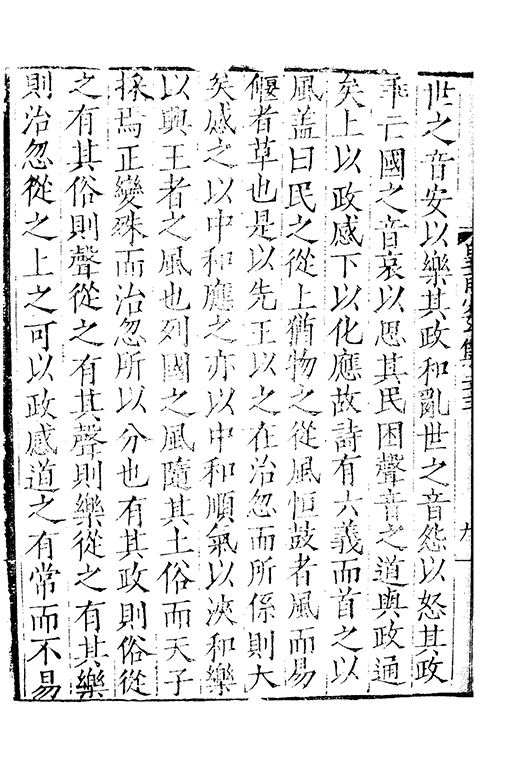 世之音安以樂其政和亂世之音怨以怒其政
乖亡國之音哀以思其民困聲音之道與政通
矣上以政感下以化應故詩有六義而首之以
風盖曰民之從上猶物之從風恒鼓者風而易
偃者草也是以先王以之在治忽而所係則大
矣感之以中和應之亦以中和順氣以浹和樂
以興王者之風也列國之風隨其土俗而天子
採焉正變殊而治忽所以分也有其政則俗從
之有其俗則聲從之有其聲則樂從之有其樂
則治忽從之上之可以政感道之有常而不易